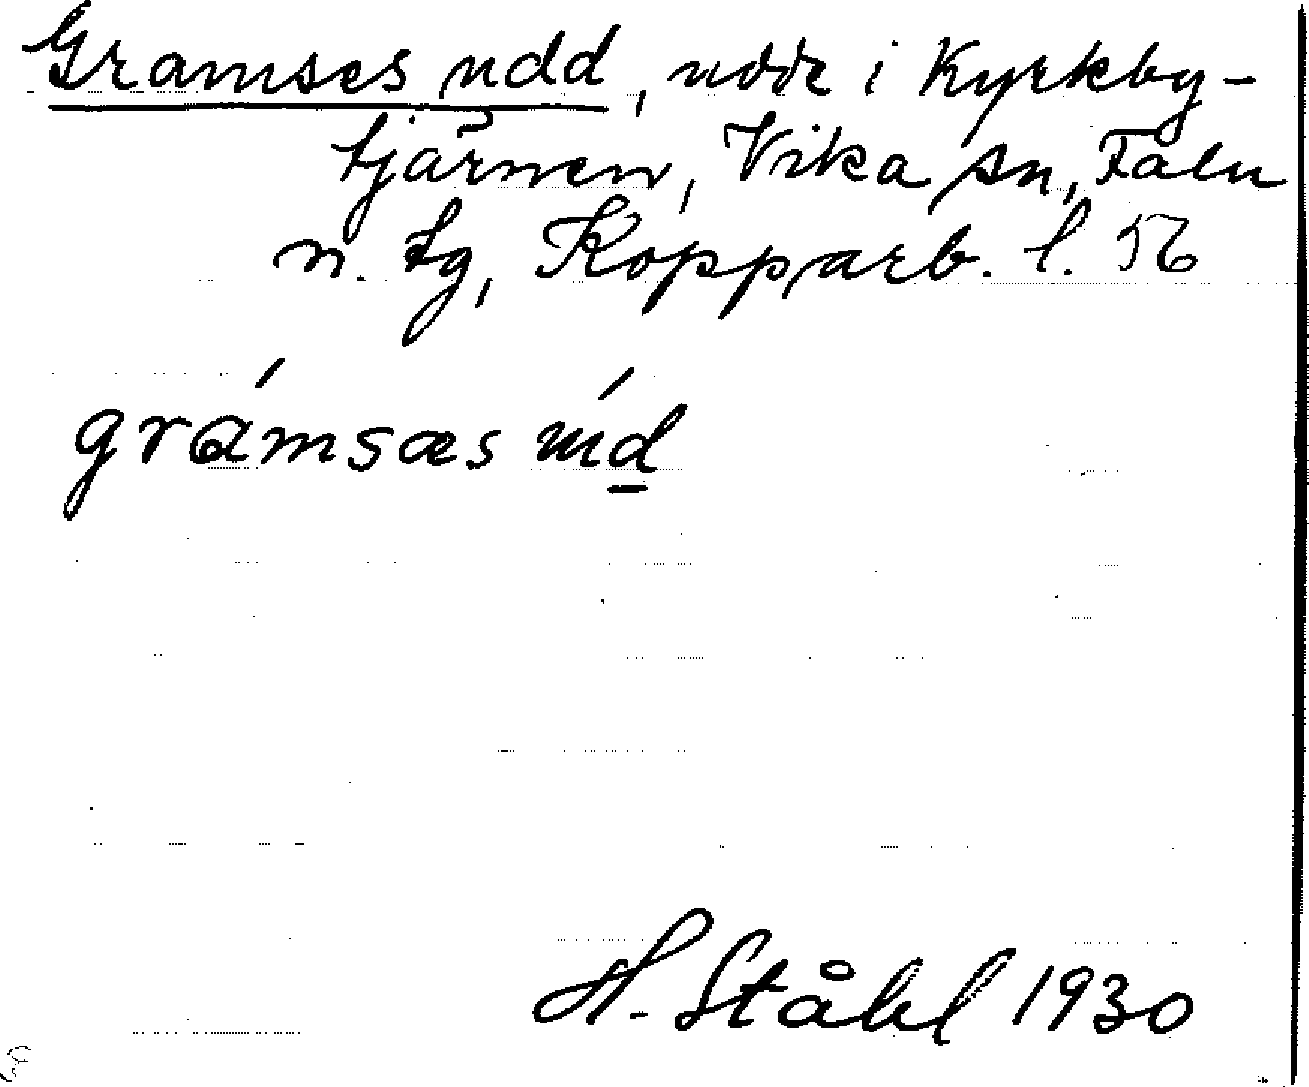 Gramses udd, udde i Kyrkby-
tjärnen, Vika sn, Falu
n. tg, Kopparb. l. 56
grámsæs úd
H. Ståhl 1930